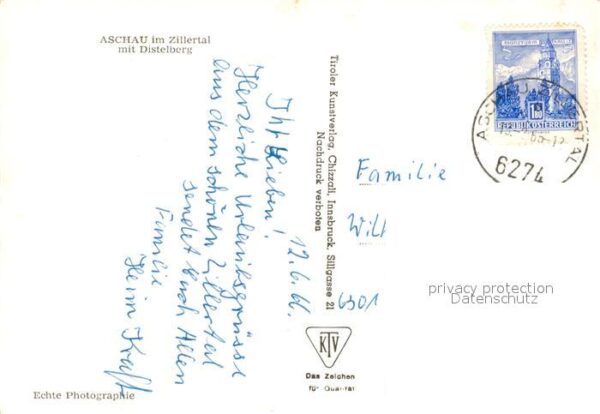 ASCHAU im Zillertal
mit Distelberg
12.6.66.
Ihr Lieben!
Herzliche Urlaubsgrüsse
aus dem schönen Zillertal
sendet Euch Allen
Familie
Heim Kraft
Echte Photographie
Tiroler Kunstverlag, Chizzali, Innsbruck, Sillgasse 21
Nachdruck verboten
Familie
Wilt
6301
KTV
Das Zeichen
für Qualität
REPUBLIK ÖSTERREICH
6274
privacy protection
Datenschutz